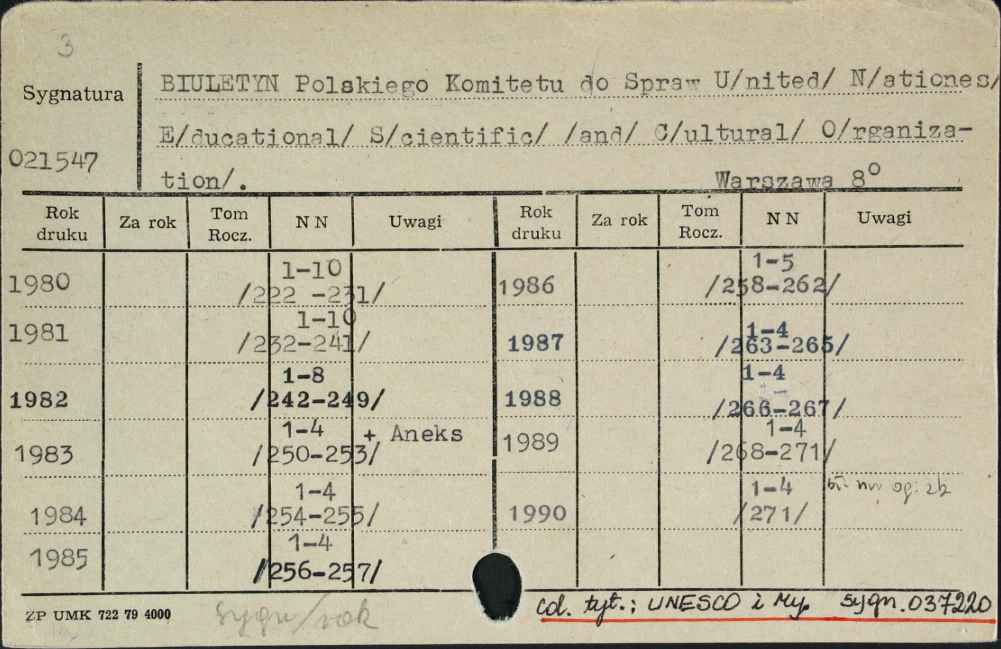 3
Sygnatura
BIULETYN Polskiego Komitetu do Spraw U/nited/ N/ationes/
E/ducational/ S/cientific/ /and/ C/ultural/ O/rganiza-
021547
tion/. Warszawa 8°
Rok druku Za rok Tom Rocz. N N Uwagi Rok druku Za rok Tom Rocz. N N Uwagi
1980 1-10 /222 -231/
1981 1-10 /232-241/
1982 1-8 /242-249/
1983 1-4 /250-253/ + Aneks
1984 1-4 /254-255/
1985 1-4 /256-257/
1986 1-5 /258-262/
1987 1-4 /263-265/
1988 1-4 /266-267/
1989 1-4 /268-271/
1990 1-4 /271/
ZP UMK 722 79 4000
sygn/rok
cd. tyt.; UNESCO i My. sygn. 037220